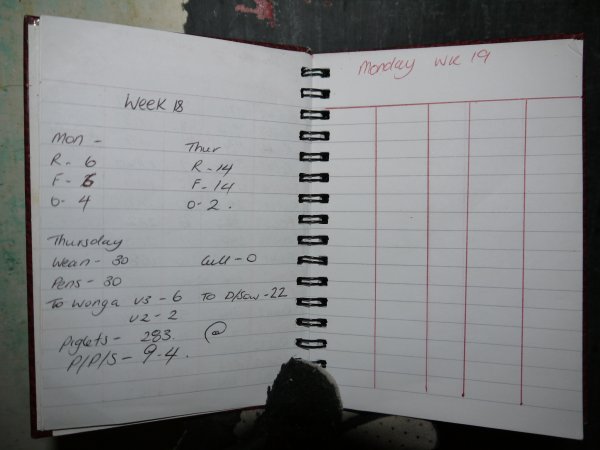 Week 18
Mon - Thur
R - 6 R - 14
F - 6 F - 14
O - 4 O - 2 .
Thursday
Wean - 30 Cull - 0
Pens - 30
To Wonga V3 - 6 To D/Sow - 22
V2 - 2
Piglets - 283. @
P/P/S - 9.4 .
Monday WK 19